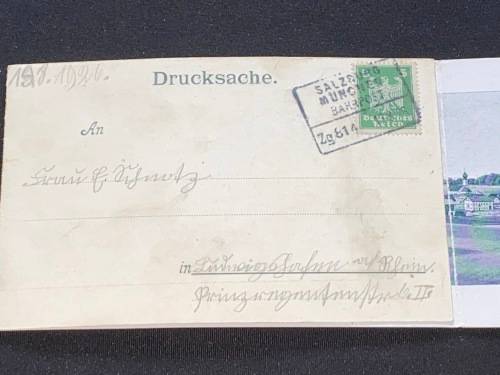 1926.
Drucksache.
5
SALZBURG
MÜNCHEN
BAHNPOST
Zg 814
Deutsches
Reich
An
Frau E. Schmutz
in Ludwigshafen a/ Rhein.
Prinzregentenstr.